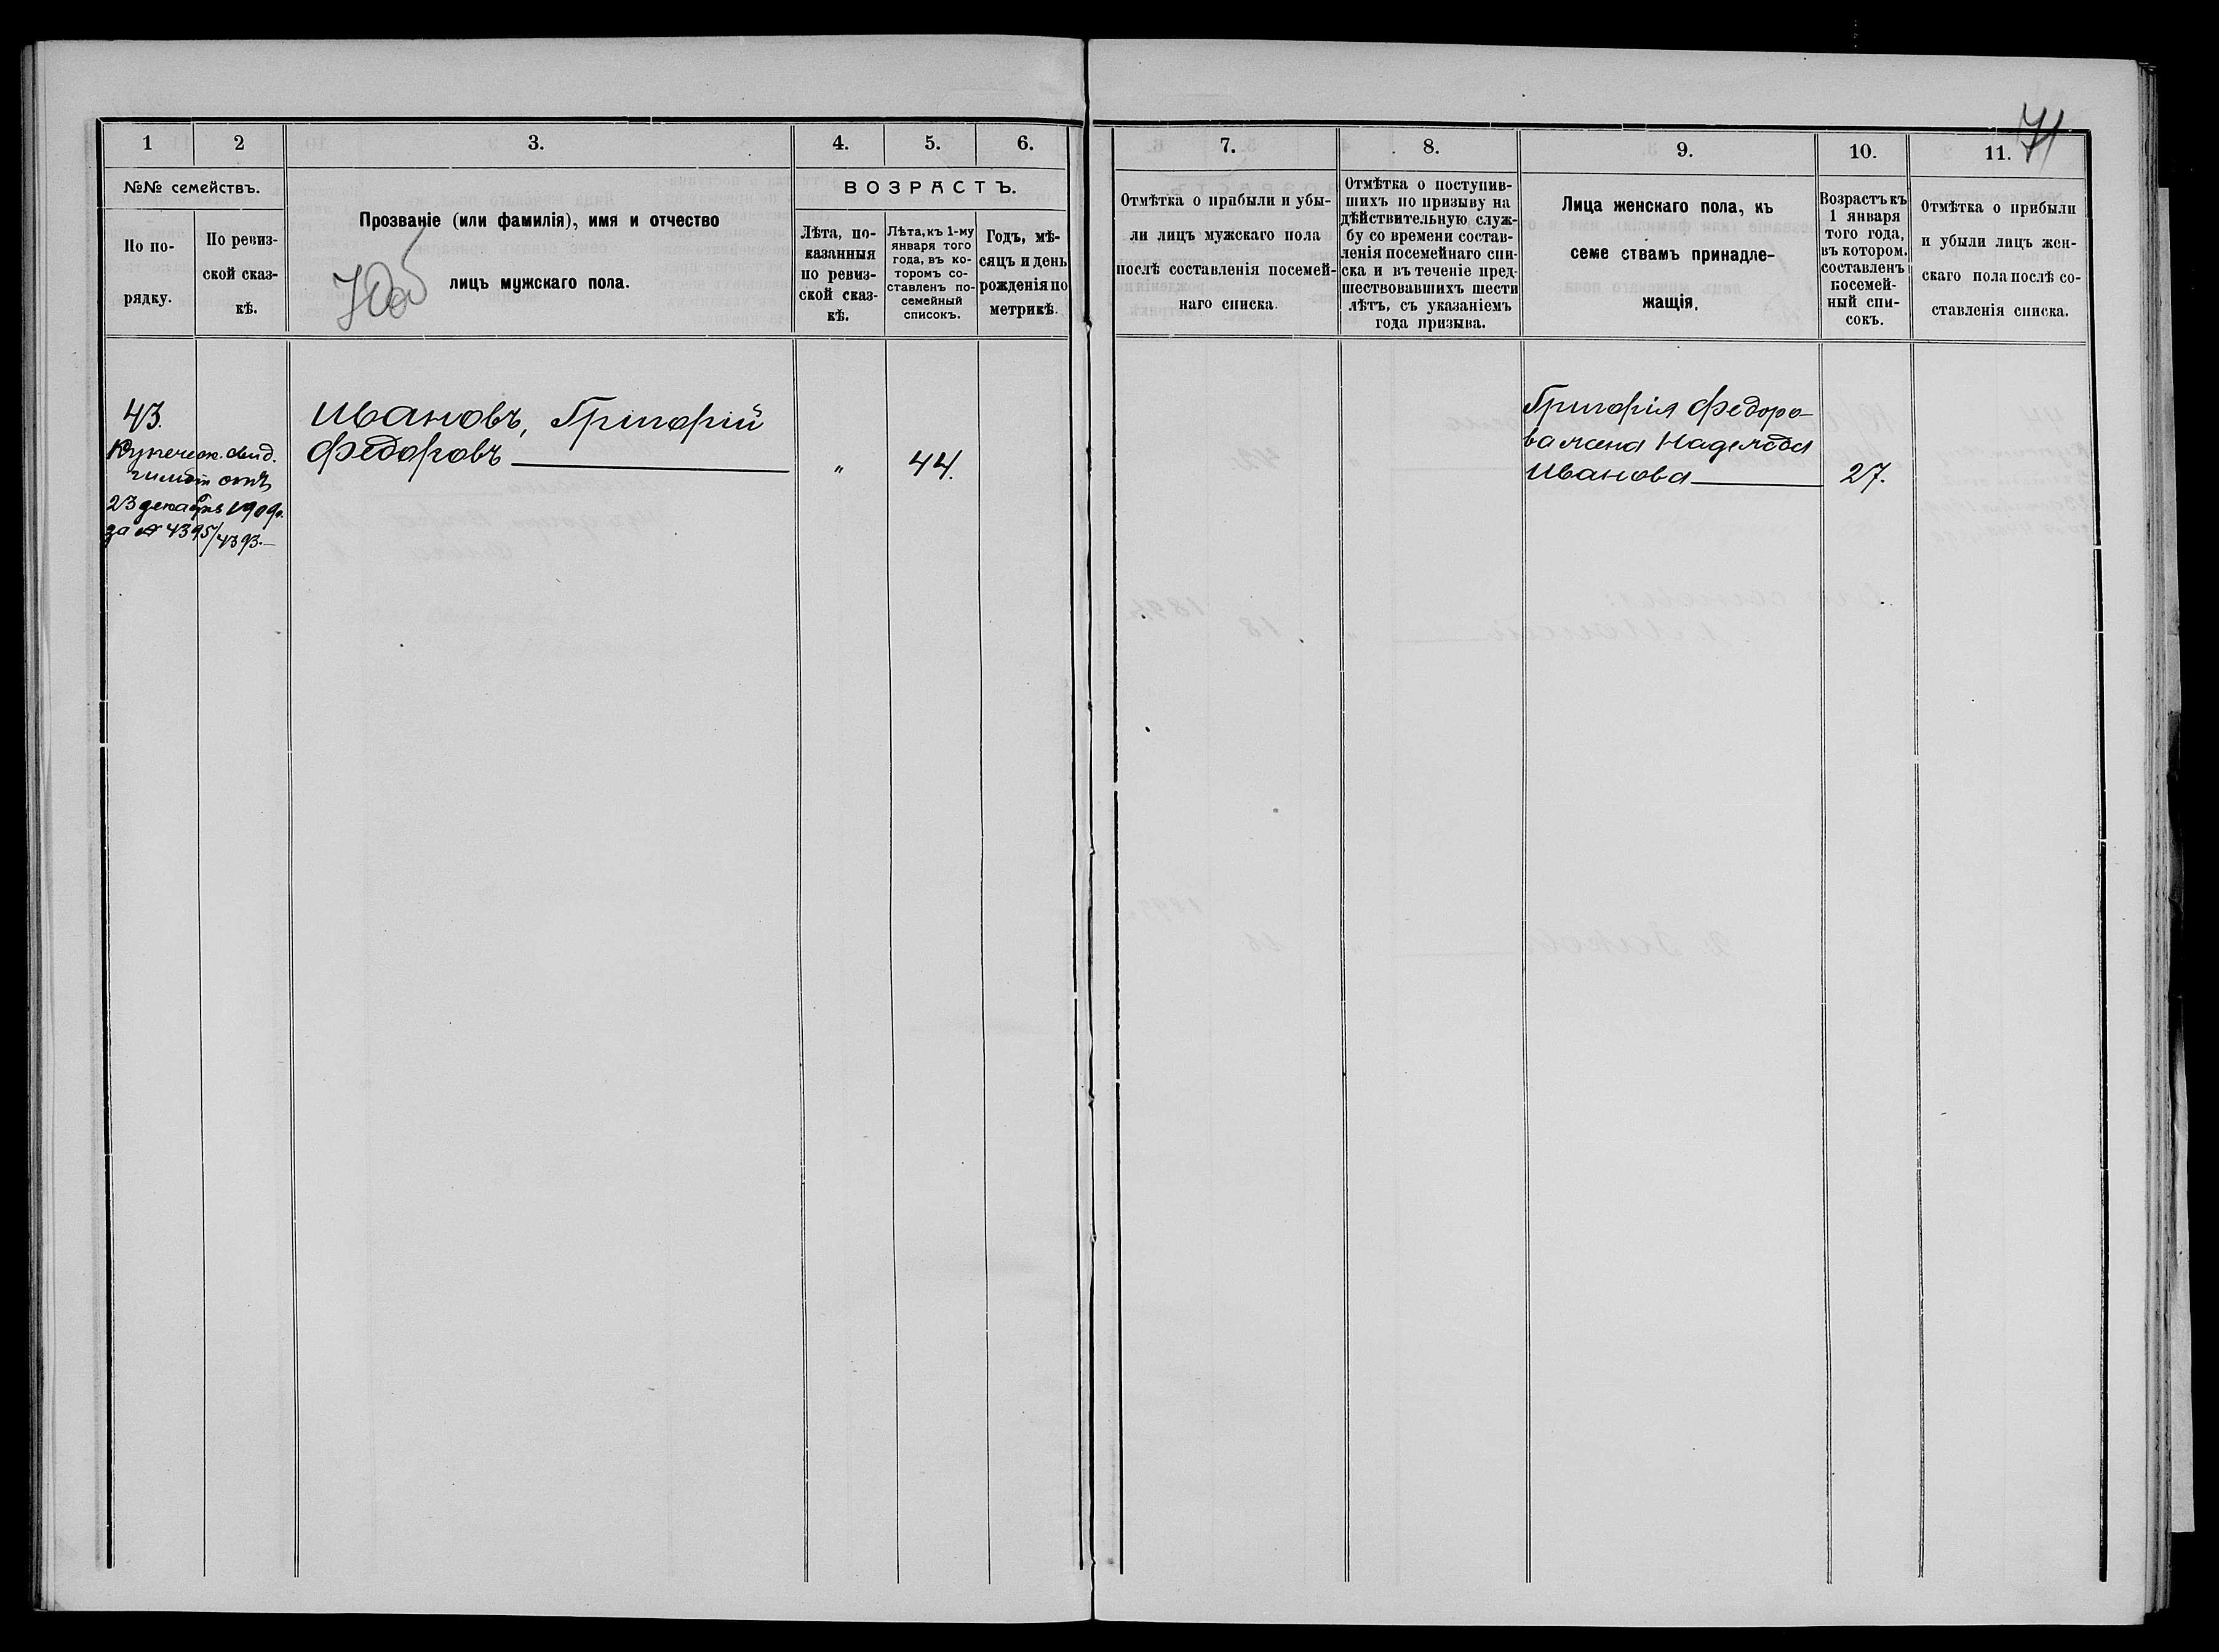 71
1
2
3.
4.
5.
6.
7.
8.
9.
10.
11.
№№ семействъ.
По по-
рядку.
По ревиз-
ской сказ-
кѣ.
Прозваніе (или фамилія), имя и отчество
лицъ мужскаго пола.
ВОЗРАСТЪ.
Лѣта, по-
казанныя
по ревиз-
ской сказ-
кѣ.
Лѣта, къ 1-му
января того
года, въ ко-
торомъ со-
ставленъ по-
семейный
списокъ.
Годъ, мѣ-
сяцъ и день
рожденія по
метрикѣ.
Отмѣтка о прибыли и убы-
ли лицъ мужскаго пола
послѣ составленія посемей-
наго списка.
Отмѣтка о поступив-
шихъ по призыву на
дѣйствительную служ-
бу со времени состав-
ленія посемейнаго спи-
ска и въ теченіе пред-
шествовавшихъ шести
лѣтъ, съ указаніемъ
года призыва.
Лица женскаго пола, къ
семе ствамъ принадле-
жащія.
Возрастъ къ
1 января
того года,
въ котором.
составленъ
посемей-
ный спи-
сокъ.
Отмѣтка о прибыли
и убыли лицъ жен-
скаго пола послѣ со-
ставленія списка.
43.
Купеческ. свид.
отъ
23 декабря 1909г.
за № 4395/4393.—
Ивановъ, Григорій
Федоровъ
„
44.
Григорія Федоро-
ва жена Надежда
Иванова
27.